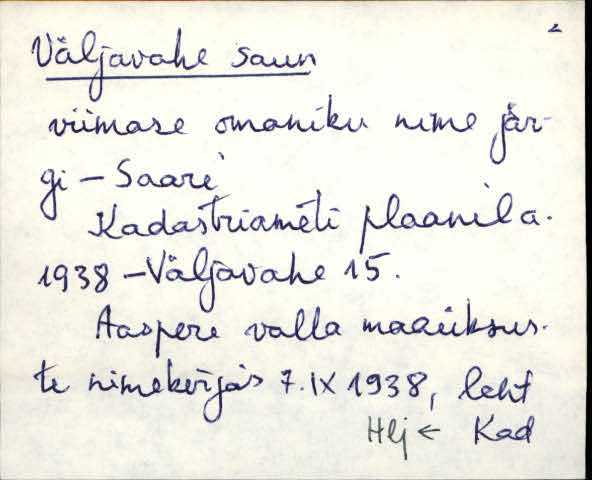 2
Väljavahe saun
viimase omaniku nime jär-
gi – Saare
Kadastriameti plaanil a.
1938 – Väljavahe 15.
Aaspere valla maaüksus-
te nimekirjas 7.IX 1938, leht
Hlj ← Kad